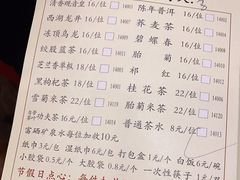 清香铁观音 16/位 14001 陈年普洱 16/位
西湖龙井 16/位 14002 荞麦茶 16/位
冻顶乌龙 16/位 14003 碧螺春 16/位
绞股蓝茶 16/位 14004 胎菊 16/位
芝兰香单枞 18/位 14005 祁红 16/位
黑枸杞茶 18/位 桂花茶 22/位
雪菊米茶 22/位 胎菊米茶 22/位
功夫茶 16/位 普通茶水 8元/位
富硒矿泉水每位加收10元
纸巾3/元包 湿纸巾6元/包 打包盒1元/个 白饭6元/碗
小胶袋0.5元/个 大胶袋0.8元/个 一次性筷子1元/
节假日点心:每件